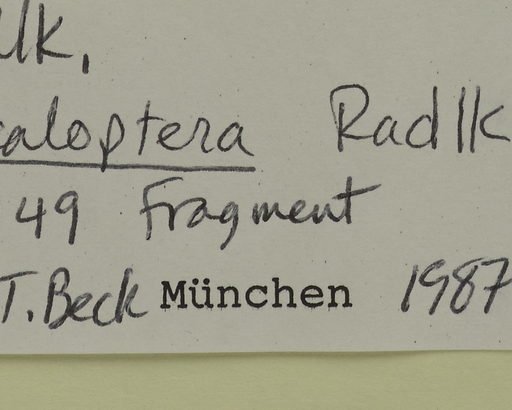 lk,
caloptera Radlk
49 Fragment
T. Beck München 1987